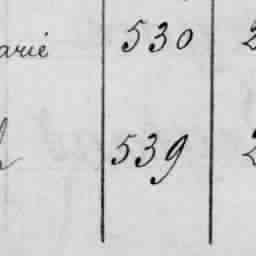 arié 530 2
539 2